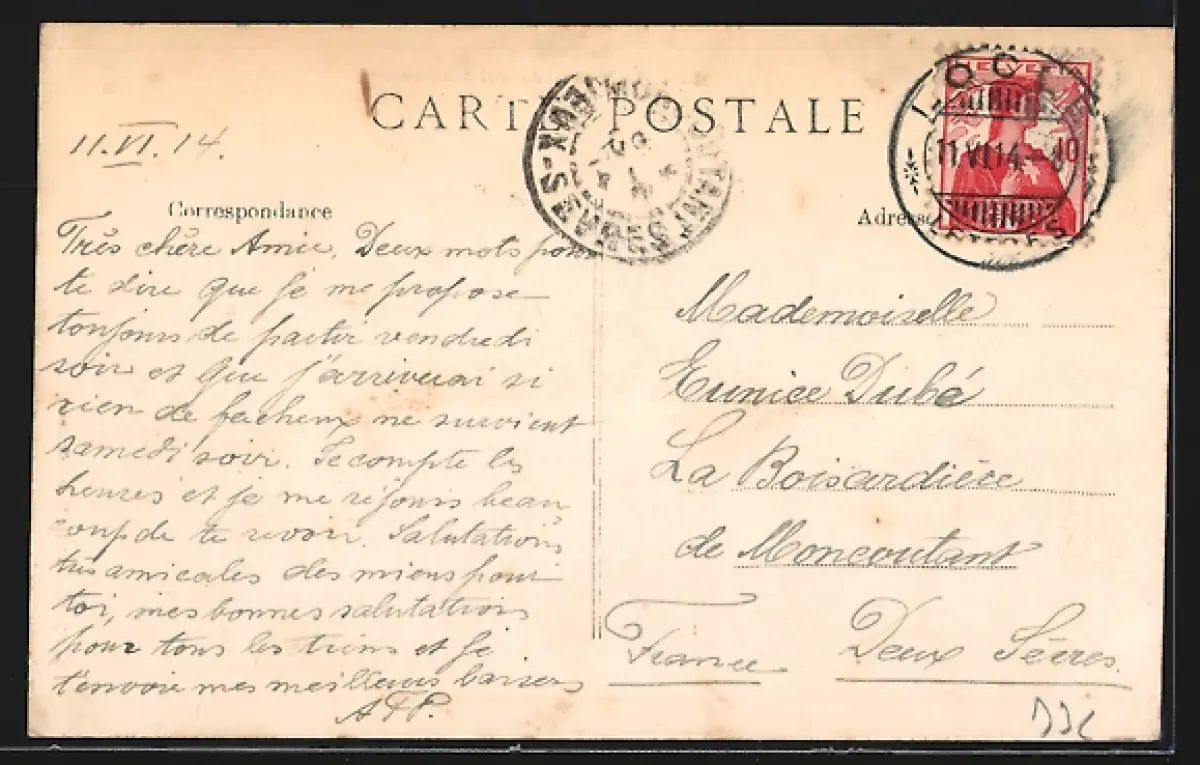 CARTE POSTALE
11.VI.14.
Correspondance
Très chère Amie. Deux mots pour
te dire que je me propose
toujours de partir vendredi
soir et que j'arriverai si
rien de fâcheux ne survient
samedi soir. Je compte les
heures et je me réjouis beau
coup de te revoir. Salutations
très amicales des miens pour
toi, mes bonnes salutations
pour tous les tiens et je
t'envoie mes meilleurs baisers
MONCOUTANT
DEUX-SEVRES
HELVETIA
10
LOCLE
11 VI 14
Adresse
Mademoiselle
Eunice Dubé
La Boisardière
de Moncoutant
Deux Sèvres.
France